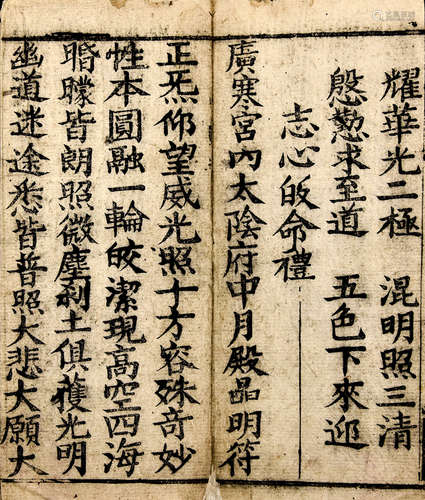 耀華光二極 混明照三清
慇懃求至道 五色下來迎
志心皈命禮
廣寒宮內太陰府中月殿晶明符
正炁仰望威光照十方容殊奇妙
性本圓融一輪皎潔現高空四海
昏朦皆朗照微塵刹土俱獲光明
幽道迷途悉皆普照大悲大願大